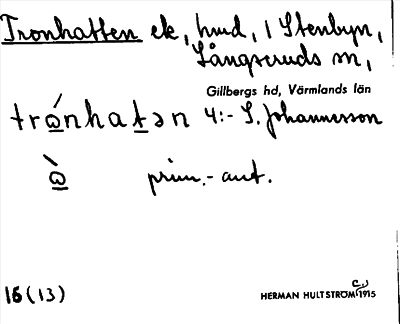 Tronhatten ek, hmd, 1 Stenbyn,
Långseruds sn,
Gillbergs hd, Värmlands län
trώnhatən 4:- S. Johannesson
ὼ prim.- aut.
16 (13)
HERMAN HULTSTRÖM 1915